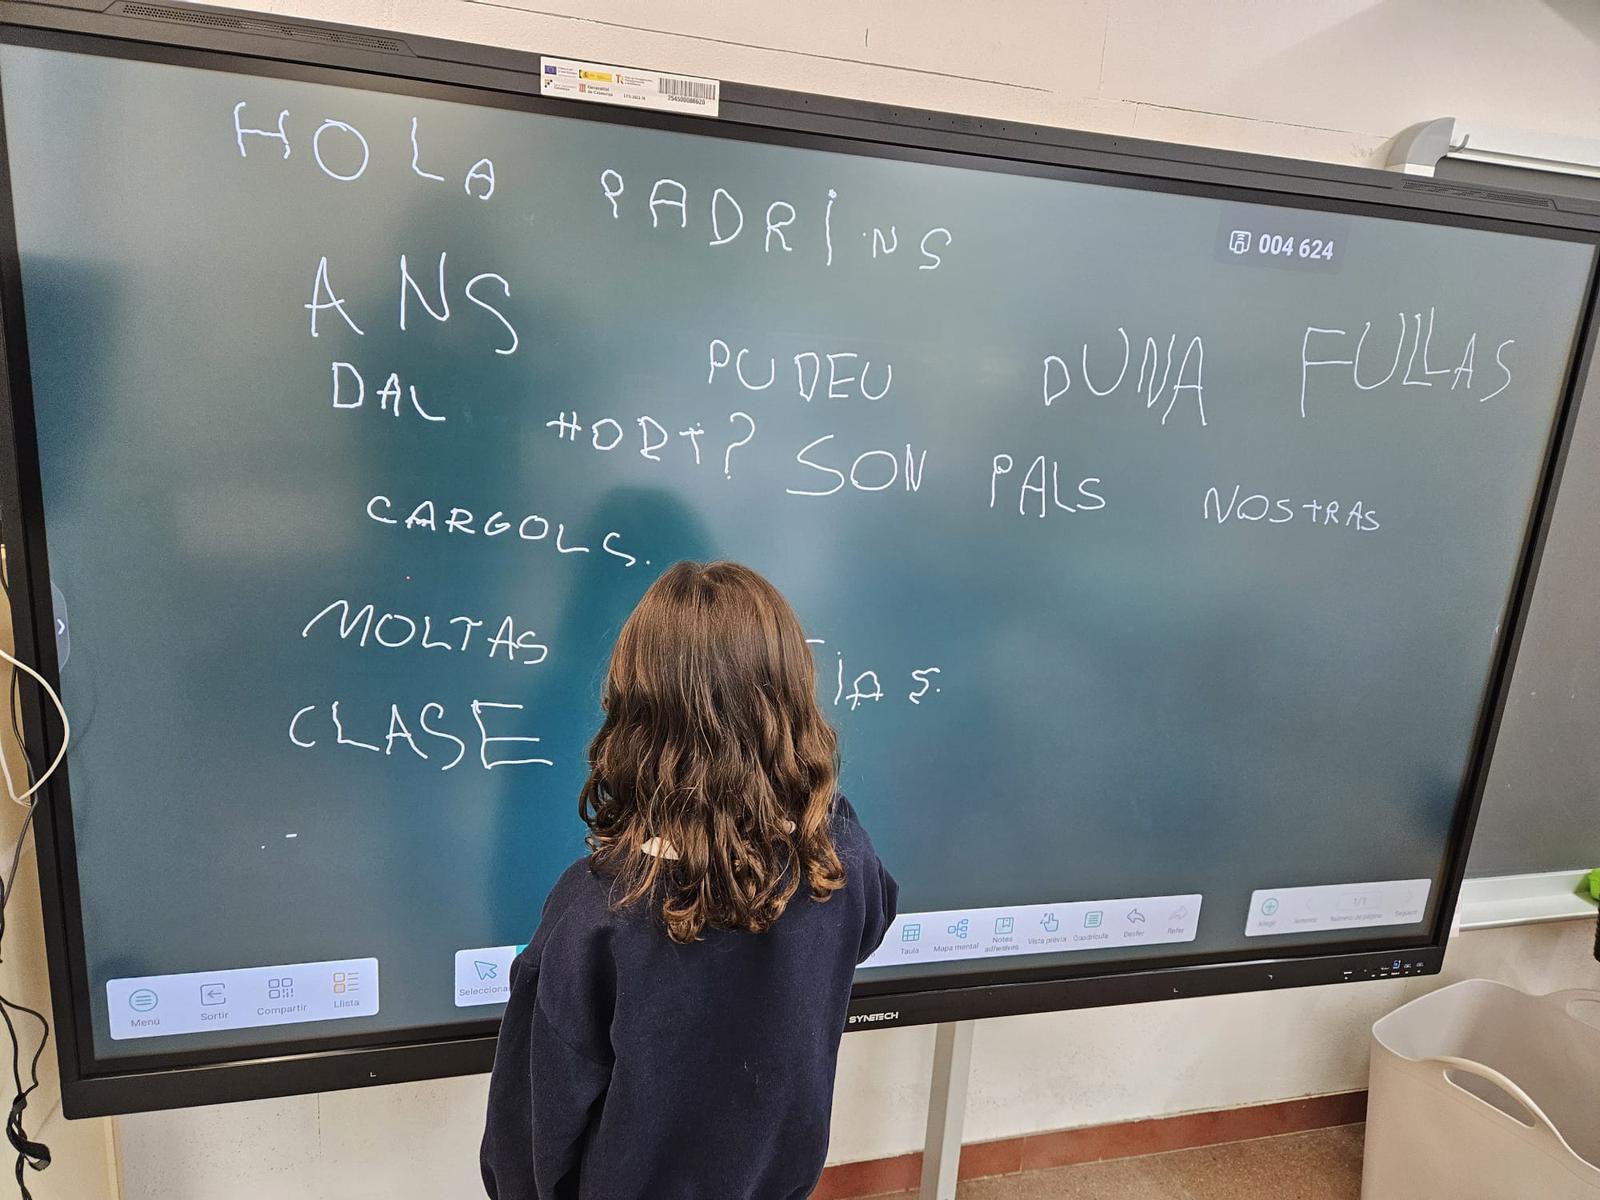 HOLA PADRINS
ANS PUDEU DUNA FULLAS
DAL HORT? SON PALS NOSTRAS
CARGOLS.
MOLTAS
CLASE
004 624
Generalitat de Catalunya
254500086620
Menú
Sortir
Compartir
Llista
Taula
Mapa mental
Notes adhesives
Vista prèvia
Quadrícula
Desfer
Refer
Afegir
Anterior
1/1
Número de pàgina
Següent
SYNETECH